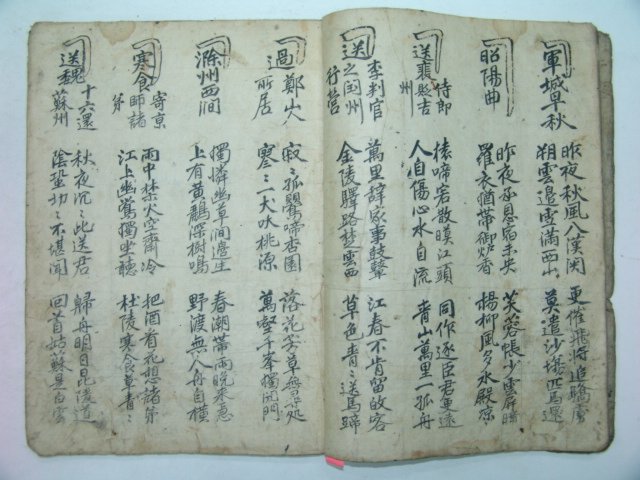 軍城早秋
昨夜秋風入漢関
朔雲邊雪滿西山
更催飛將追驕虜
莫遣沙場匹馬還
昭陽曲
昨夜承恩宿未央
羅衣猶帶御炉香
芙蓉帳小雲屏暗
楊柳風多水殿凉
送裴貶吉州
侍郎
猿啼客散暮江頭
人自傷心水自流
同作逐臣君更遠
青山萬里一孤舟
送李判官之润州行營
萬里辭家事鼓鼙
金陵驛路楚雲西
江春不肯留故客
草色青〻送馬蹄
過鄭山人所居
寂〻孤鶯啼杏園
寥〻一犬吠桃源
落花芳草無尋處
萬壑千峯獨閉門
滁州西澗
獨憐幽草澗邊生
上有黃鸝深樹鳴
春潮帶雨晚來急
野渡無人舟自横
寒食寄京師諸弟
雨中禁火空齋冷
江上幽鶯獨坐聽
把酒看花想諸弟
杜陵寒食草青〻
送魏十六還蘇州
秋夜沉〻此送君
陰蛩切〻不堪聞
歸舟明日昆陵道
回首姑蘇是白雲